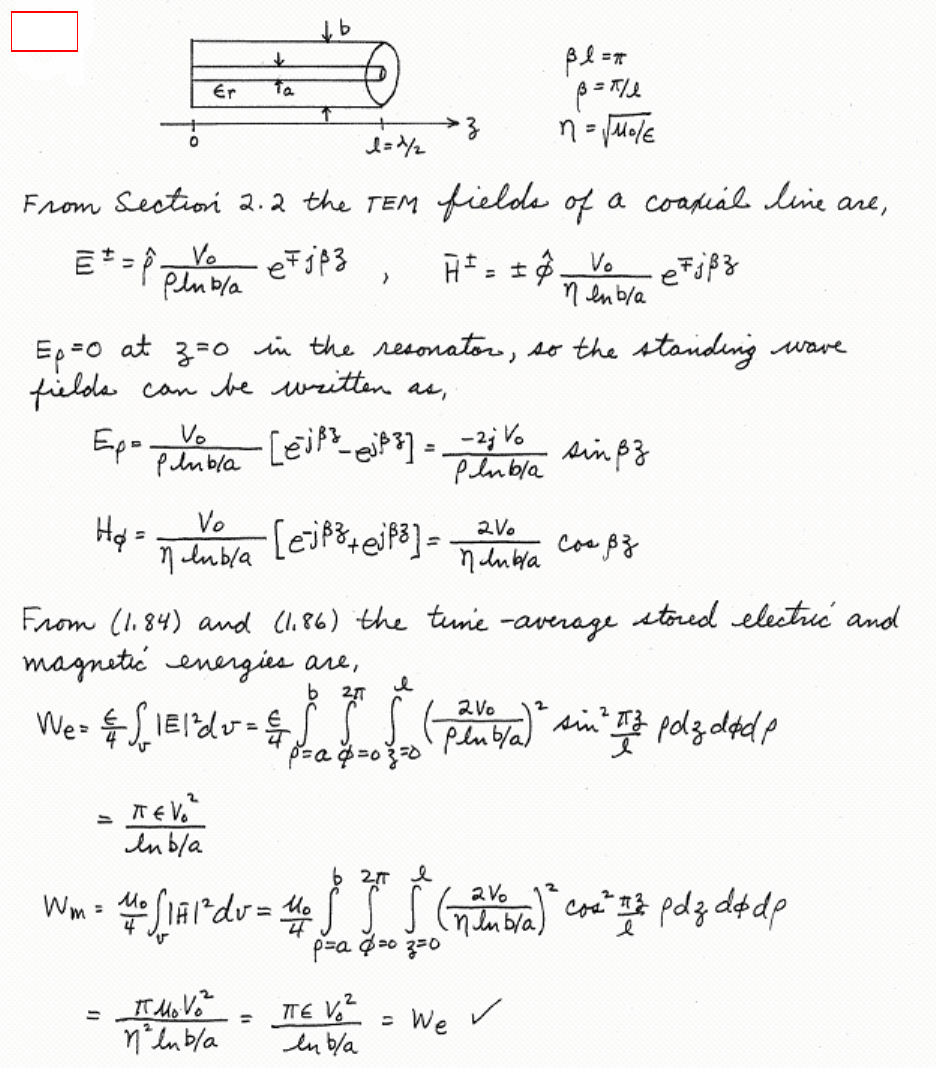 b
εr
a
0
l=λ/2
z
βl=π
β=π/l
η=√μ₀/ε
From Section 2.2 the TEM fields of a coaxial line are,
Ē± = ρ̂ V₀/(ρ ln b/a) e^∓jβz , H̄± = ± φ̂ V₀/(η ln b/a) e^∓jβz
Eρ=0 at z=0 in the resonator, so the standing wave
fields can be written as,
Eρ = V₀/(ρ ln b/a) [e^-jβz - e^jβz] = -2jV₀/(ρ ln b/a) sin βz
Hφ = V₀/(η ln b/a) [e^-jβz + e^jβz] = 2V₀/(η ln b/a) cos βz
From (1.84) and (1.86) the time-average stored electric and
magnetic energies are,
We = ε/4 ∫_v |Ē|² dv = ε/4 ∫_{ρ=a}^{b} ∫_{φ=0}^{2π} ∫_{z=0}^{l} (2V₀/(ρ ln b/a))² sin² πz/l ρ dz dφ dρ
= πεV₀²/(ln b/a)
Wm = μ₀/4 ∫_v |H̄|² dv = μ₀/4 ∫_{ρ=a}^{b} ∫_{φ=0}^{2π} ∫_{z=0}^{l} (2V₀/(η ln b/a))² cos² πz/l ρ dz dφ dρ
= πμ₀V₀²/(η² ln b/a) = πεV₀²/(ln b/a) = We ✓